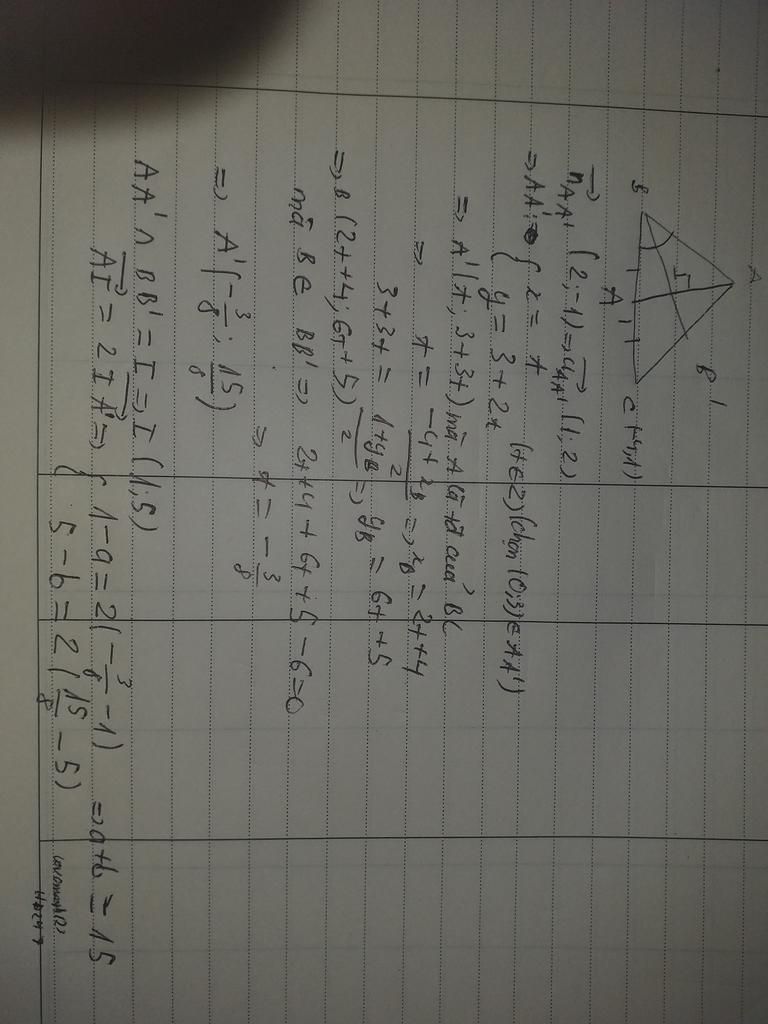 A
B'
I
B
A'
C (-4,1)
n⃗AA' (2;-1) => u⃗AA' (1;2)
=> AA': { x = t
{ y = 3 + 2t (t ∈ Z) (chọn (0;3) ∈ AA')
=> A' (t; 3+3t) mà A là tđ của BC
=> t = (-4 + xB)/2 => xB = 2t+4
3+3t = (1+yB)/2 => yB = 6t+5
=> B (2t+4; 6t+5)
mà B ∈ BB' => 2t+4+6t+5-6=0
=> t = -3/8
=> A' (-3/8; 15/8)
AA' ∩ BB' = I => I (1;5)
AI⃗ = 2IA'⃗ => { 1-a = 2(-3/8 - 1)
{ 5-b = 2(15/8 - 5) => a+b = 15